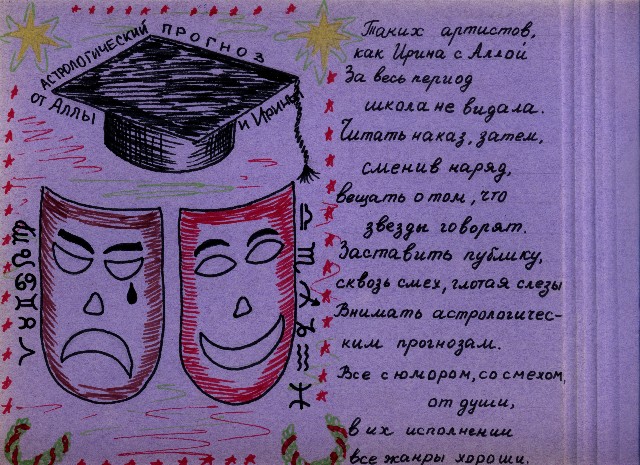 АСТРОЛОГИЧЕСКИЙ ПРОГНОЗ
ОТ АЛЛЫ
И ИРИНЫ
Таких артистов,
как Ирина с Аллой
За весь период
школа не видала.
Читать наказ, затем,
сменив наряд,
вещать о том, что
звезды говорят.
Заставить публику,
сквозь смех, глотая слезы
Внимать астрологичес-
ким прогнозам.
Все с юмором, со смехом,
от души,
в их исполнении
все жанры хороши.